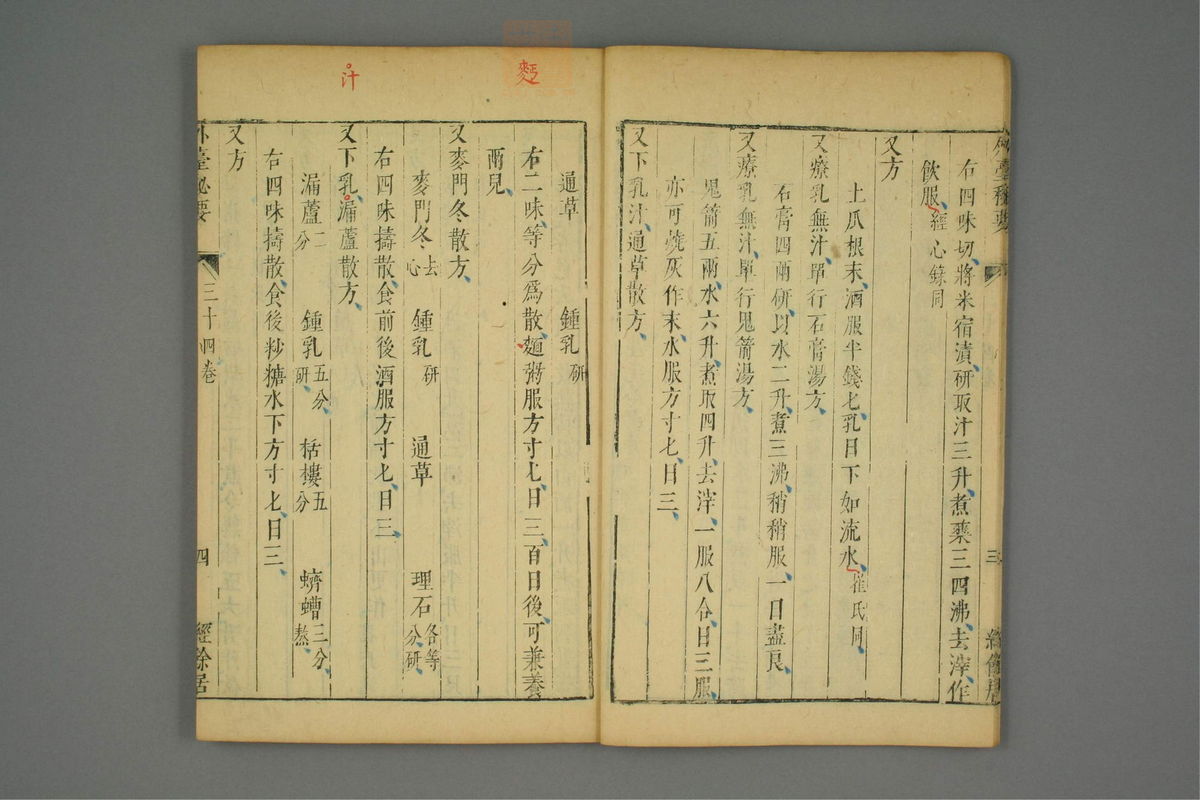 右四味切將米宿漬研取汁三升煮藥三四沸去滓作
飲服經心錄同
又方
土瓜根末酒服半錢匕乳日下如流水崔氏同
又療乳無汁單行石膏湯方
石膏四兩研以水二升煮三沸稍稍服一日盡良
又療乳無汁單行鬼箭湯方
鬼箭五兩水六升煮取四升去滓一服八合日三服
亦可燒灰作末水服方寸匕日三
又下乳汁通草散方
三
通草 鍾乳研
右二味等分爲散麵粥服方寸匕日三百日後可兼養
兩兒
又麥門冬散方
麥門冬去心 鍾乳研 通草 理石各等分研
右四味擣散食前後酒服方寸匕日三
又下乳漏蘆散方
漏蘆二分 鍾乳五分研 栝樓五分 蠐螬三分熬
右四味擣散食後粆糖水下方寸匕日三
又方
外臺秘要 三十四卷 四 經餘居
汁